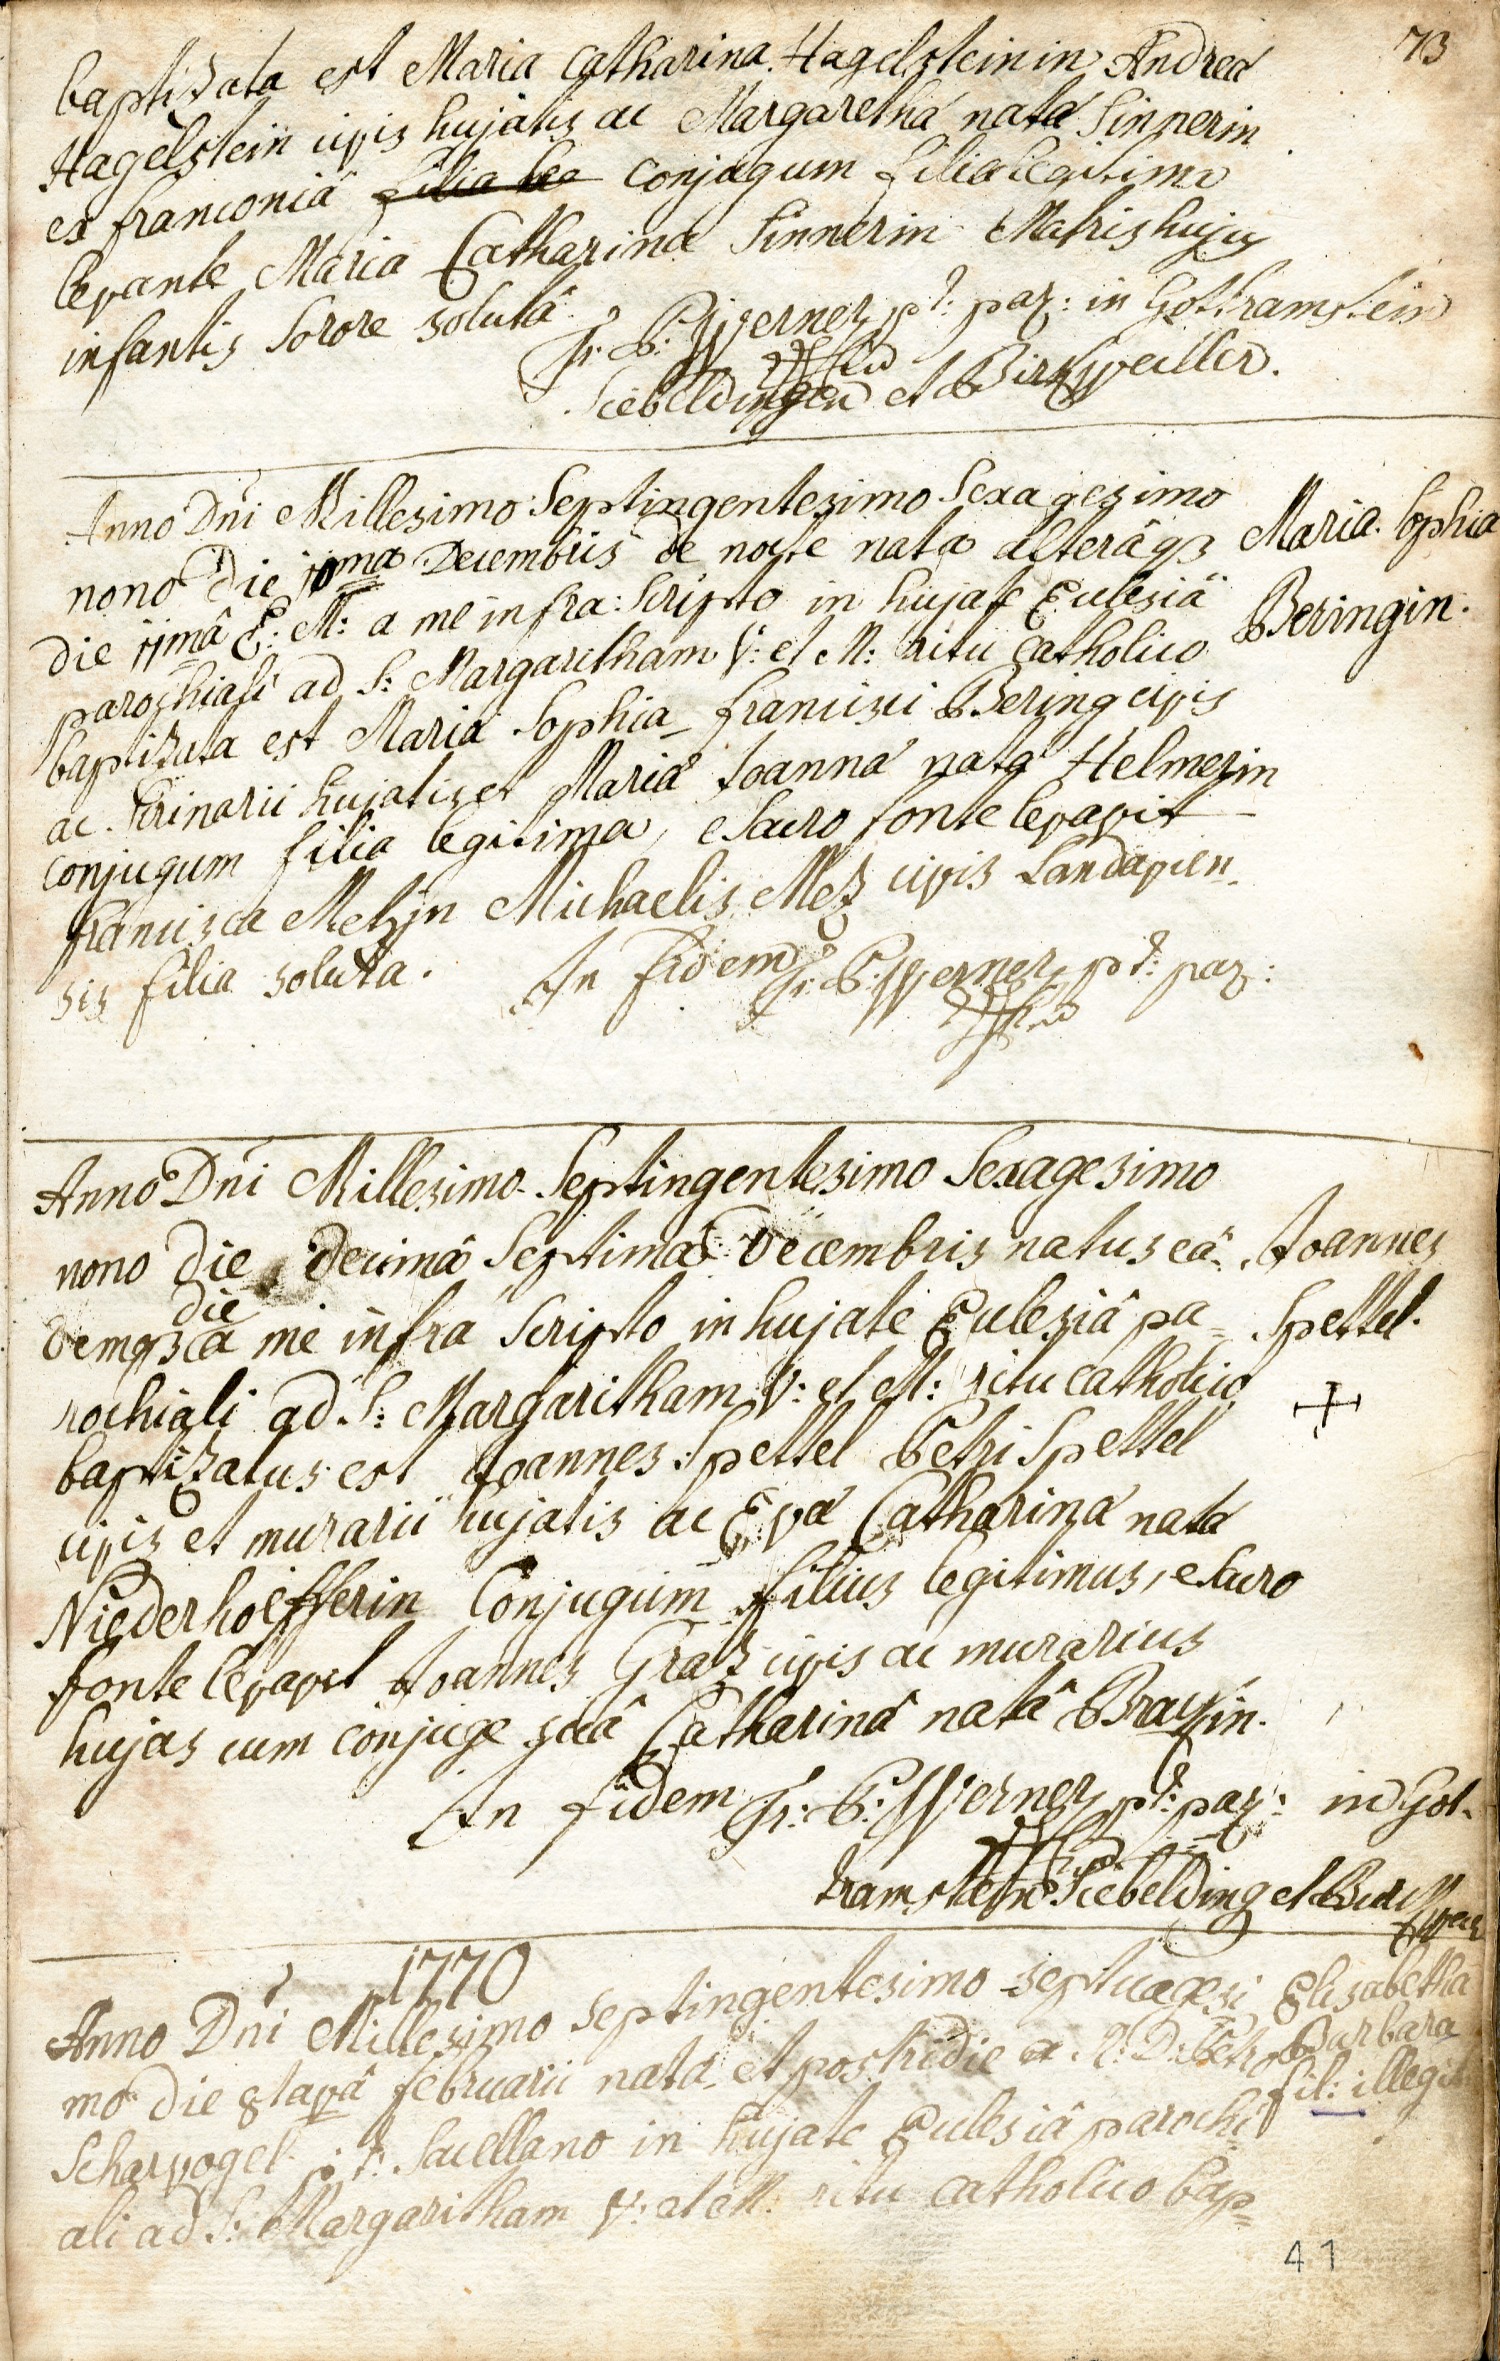 73
baptizata est Maria Catharina Hagelsteinin Andreâ
Hagelstein civis hujatis ac Margarethâ natâ Sinnerin
ex franconiâ filia leg conjugum filia legitima
levante Maria Catharina Sinnerin Matris hujus
infantis Sorore solutâ.
Fr: P: Werner pt: par: in Gotramstein
Siebeldingen et Birkweiller.
Anno Dni Millesimo Septingentesimo Sexagesimo
nono die 10ma Decembris de nocte nata alterâq3
Maria Sophia
Beringin.
die 11mâ E: M: a me infra: Scripto in hujate Eclesiâ
parochiali ad S: Margaritham V: et M: ritu catholico
baptizata est Maria Sophia francisci Bering civis
ac Scrinarii hujatis et Mariâ Joannâ natâ Helmerin
conjugum filia legitima, e Sacro fonte levavit
francisca Mezin Michaelis Mez civis Landavien-
sis filia soluta.
In fidem Fr: P: Werner pt: par:
Anno Dni Millesimo Septingentesimo Sexagesimo
nono die decimâ Septimâ Decembris natus eâ-
Joannes
Spettel.
die
demq3 a me infra Scripto in hujate Eclesiâ pa-
rochiali ad S: Margaritham V: et M: ritu catholico
baptizatus est Joannes Spettel Petri Spettel
civis et murarii hujatis ac Evâ Catharinâ natâ
Niederhoefferin Conjugum filius legitimus, e Sacro
fonte levavit Joannes Graz civis ac murarius
hujas cum conjuge suâ Catharinâ natâ
In fidem Fr: P: Werner pt: par: in Got-
tramstein Siebelding et
1770
Anno Dni Millesimo Septingentesimo septuagesi
Elisabetha
Barbara
fil: illegit
mo die 8tavâ februarii nata et postridie a R: D: Petro
Scharvogel p: t: Sacellano in hujate Eclesiâ parochi
ali ad S: Margaritham V: et M: ritu catholico bap-
41